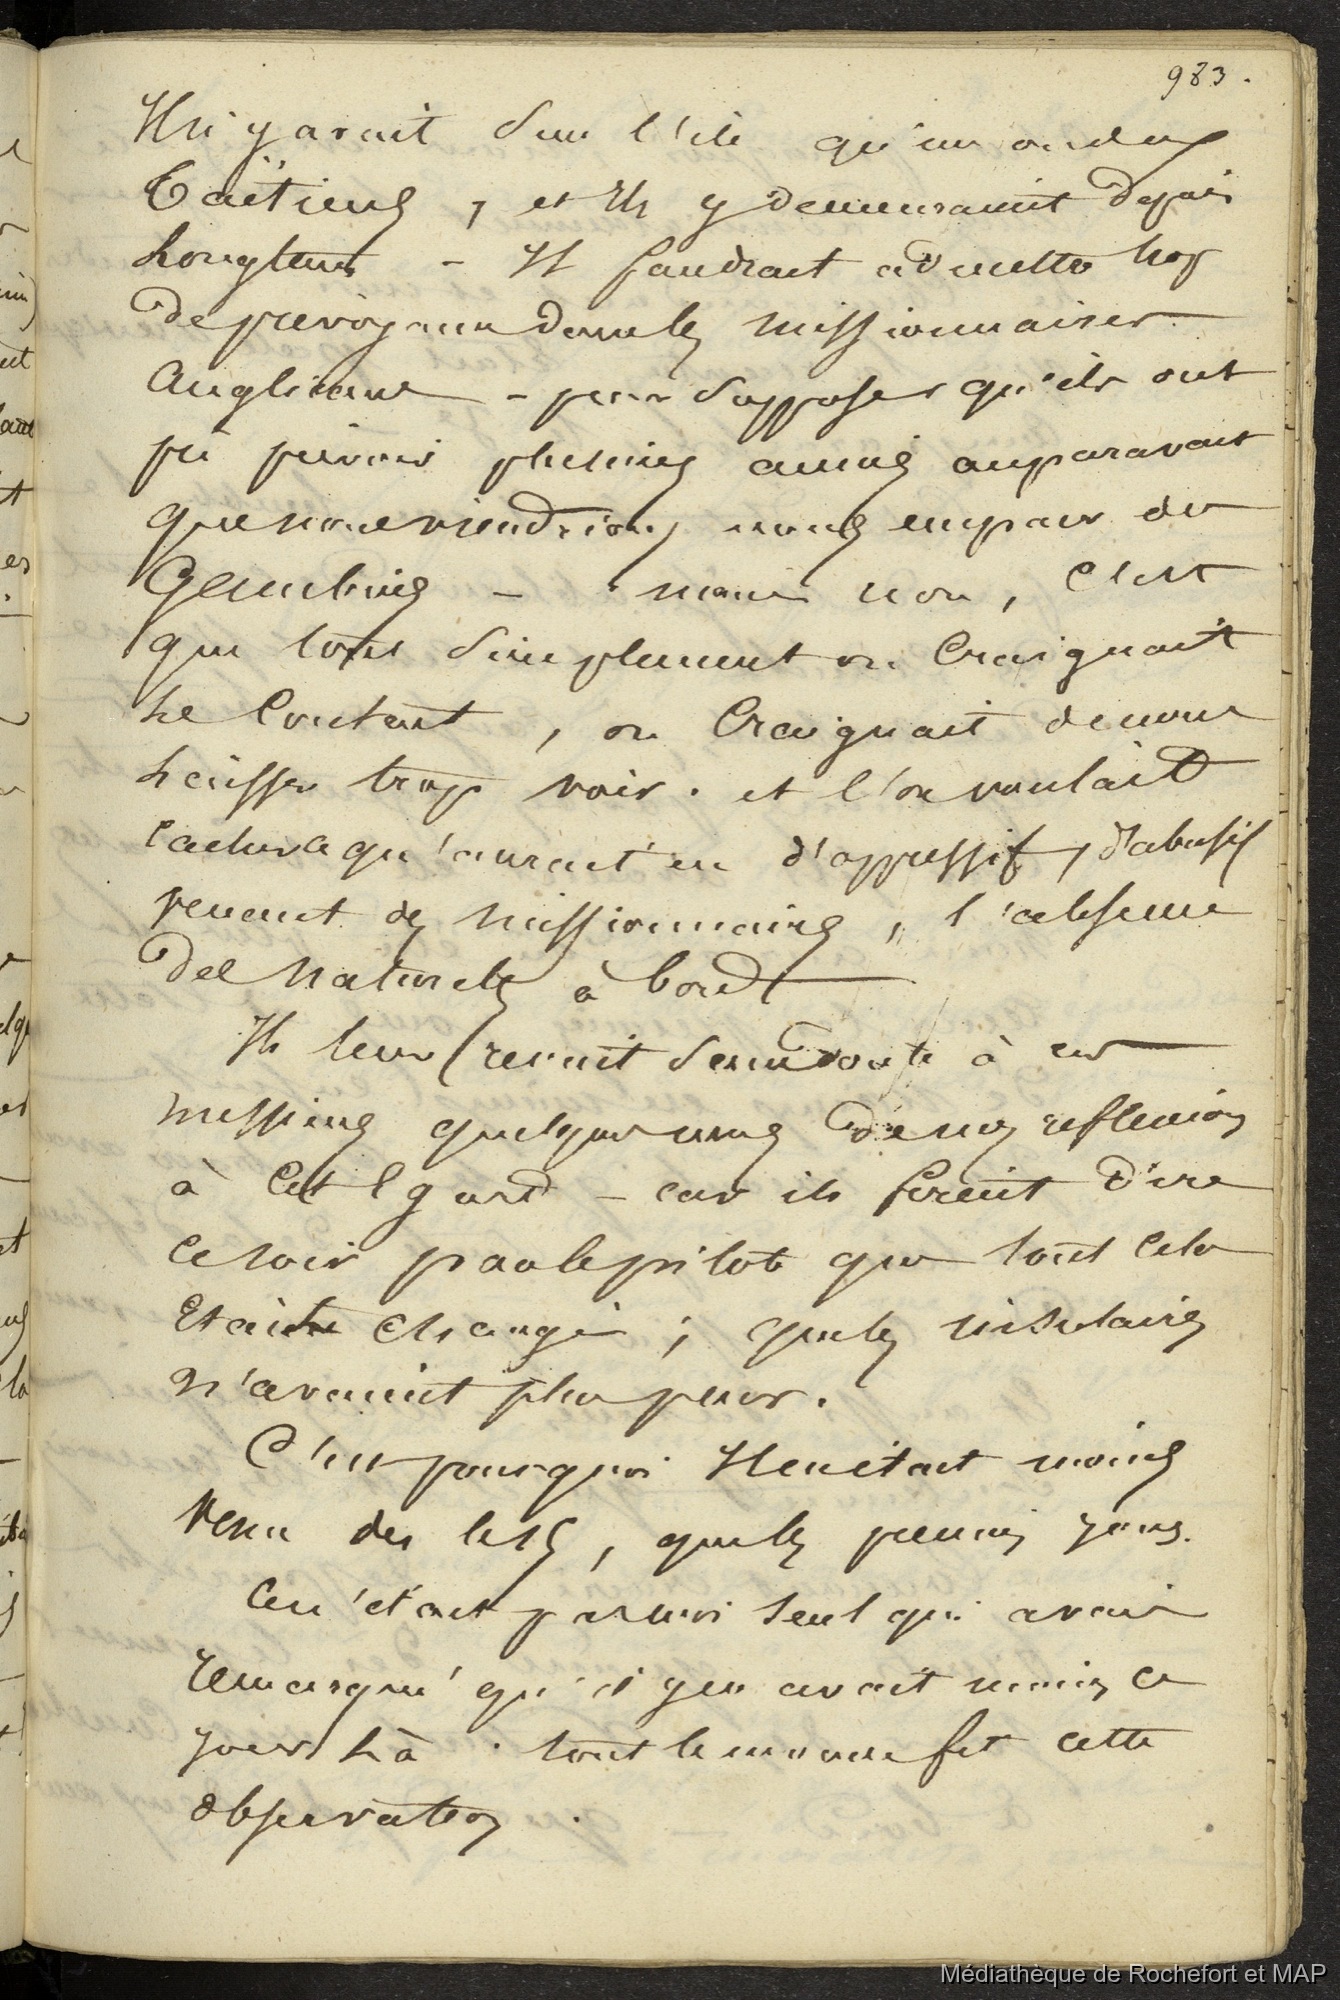 983.
Il n'y avait dans l'ile qu'un ou deux
Taïtiens, et ils y demeuraient depuis
longtems - Il faudrait admettre trop
de prévoyance dans les missionnaires
Anglicans - pour supposer qu'ils ont
pu prévoir plusieurs années auparavant
que nous viendrions nous emparer des
Gambiers - mais non, c'est
que tout simplement on craignait
le contact, on craignait de nous
laisser trop voir. et l'on voulait
cacher ce qu'aurait eu d'oppressif, d'abusif
venant des missionnaires, l'absence
des naturels à bord
Il leur revint sans doute à ces
messieurs quelques unes de nos reflexions
à cet égard - car ils firent dire
ce soir par le pilote que tout cela
était changé ; que les insulaires
n'avaient plus peur.
C'est pourquoi Il en était moins
venu des lors, que les premiers jours.
Ce n'était pas moi seul qui avais
remarqué qu'il y en avait moins ce
jour là. tout le monde fit cette
observation.
Médiathèque de Rochefort et MAP